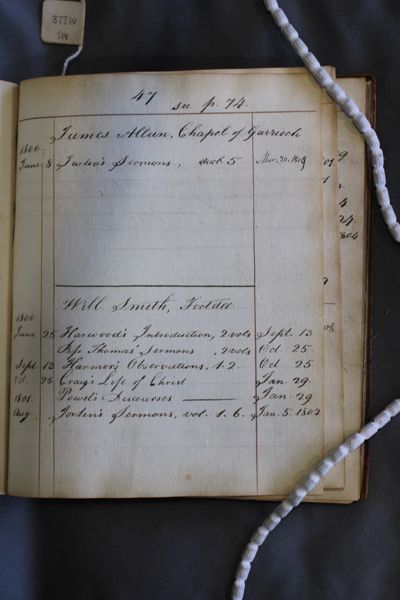 MS
M 228
47
see p. 74.
James Allan, Chapel of Garrioch
1800.
June 8 Jortin's Sermons, 5 Mar. 20. 1809
Will Smith, Footdee
1800
June 25 Harwood's Introduction, 2 vols Sept. 13
Bp. Thomas' Sermons, 2 vols Oct. 25.
Sept. 13 Harmer's Observations, 1. 2. Oct. 25
Oct. 25 Craig's Life of Christ Jan. 29.
1801. Powel's Discourses Jan. 29.
Aug. Jortin's Sermons, vol. 1. 6. Jan. 5. 1802
9
24.
1804